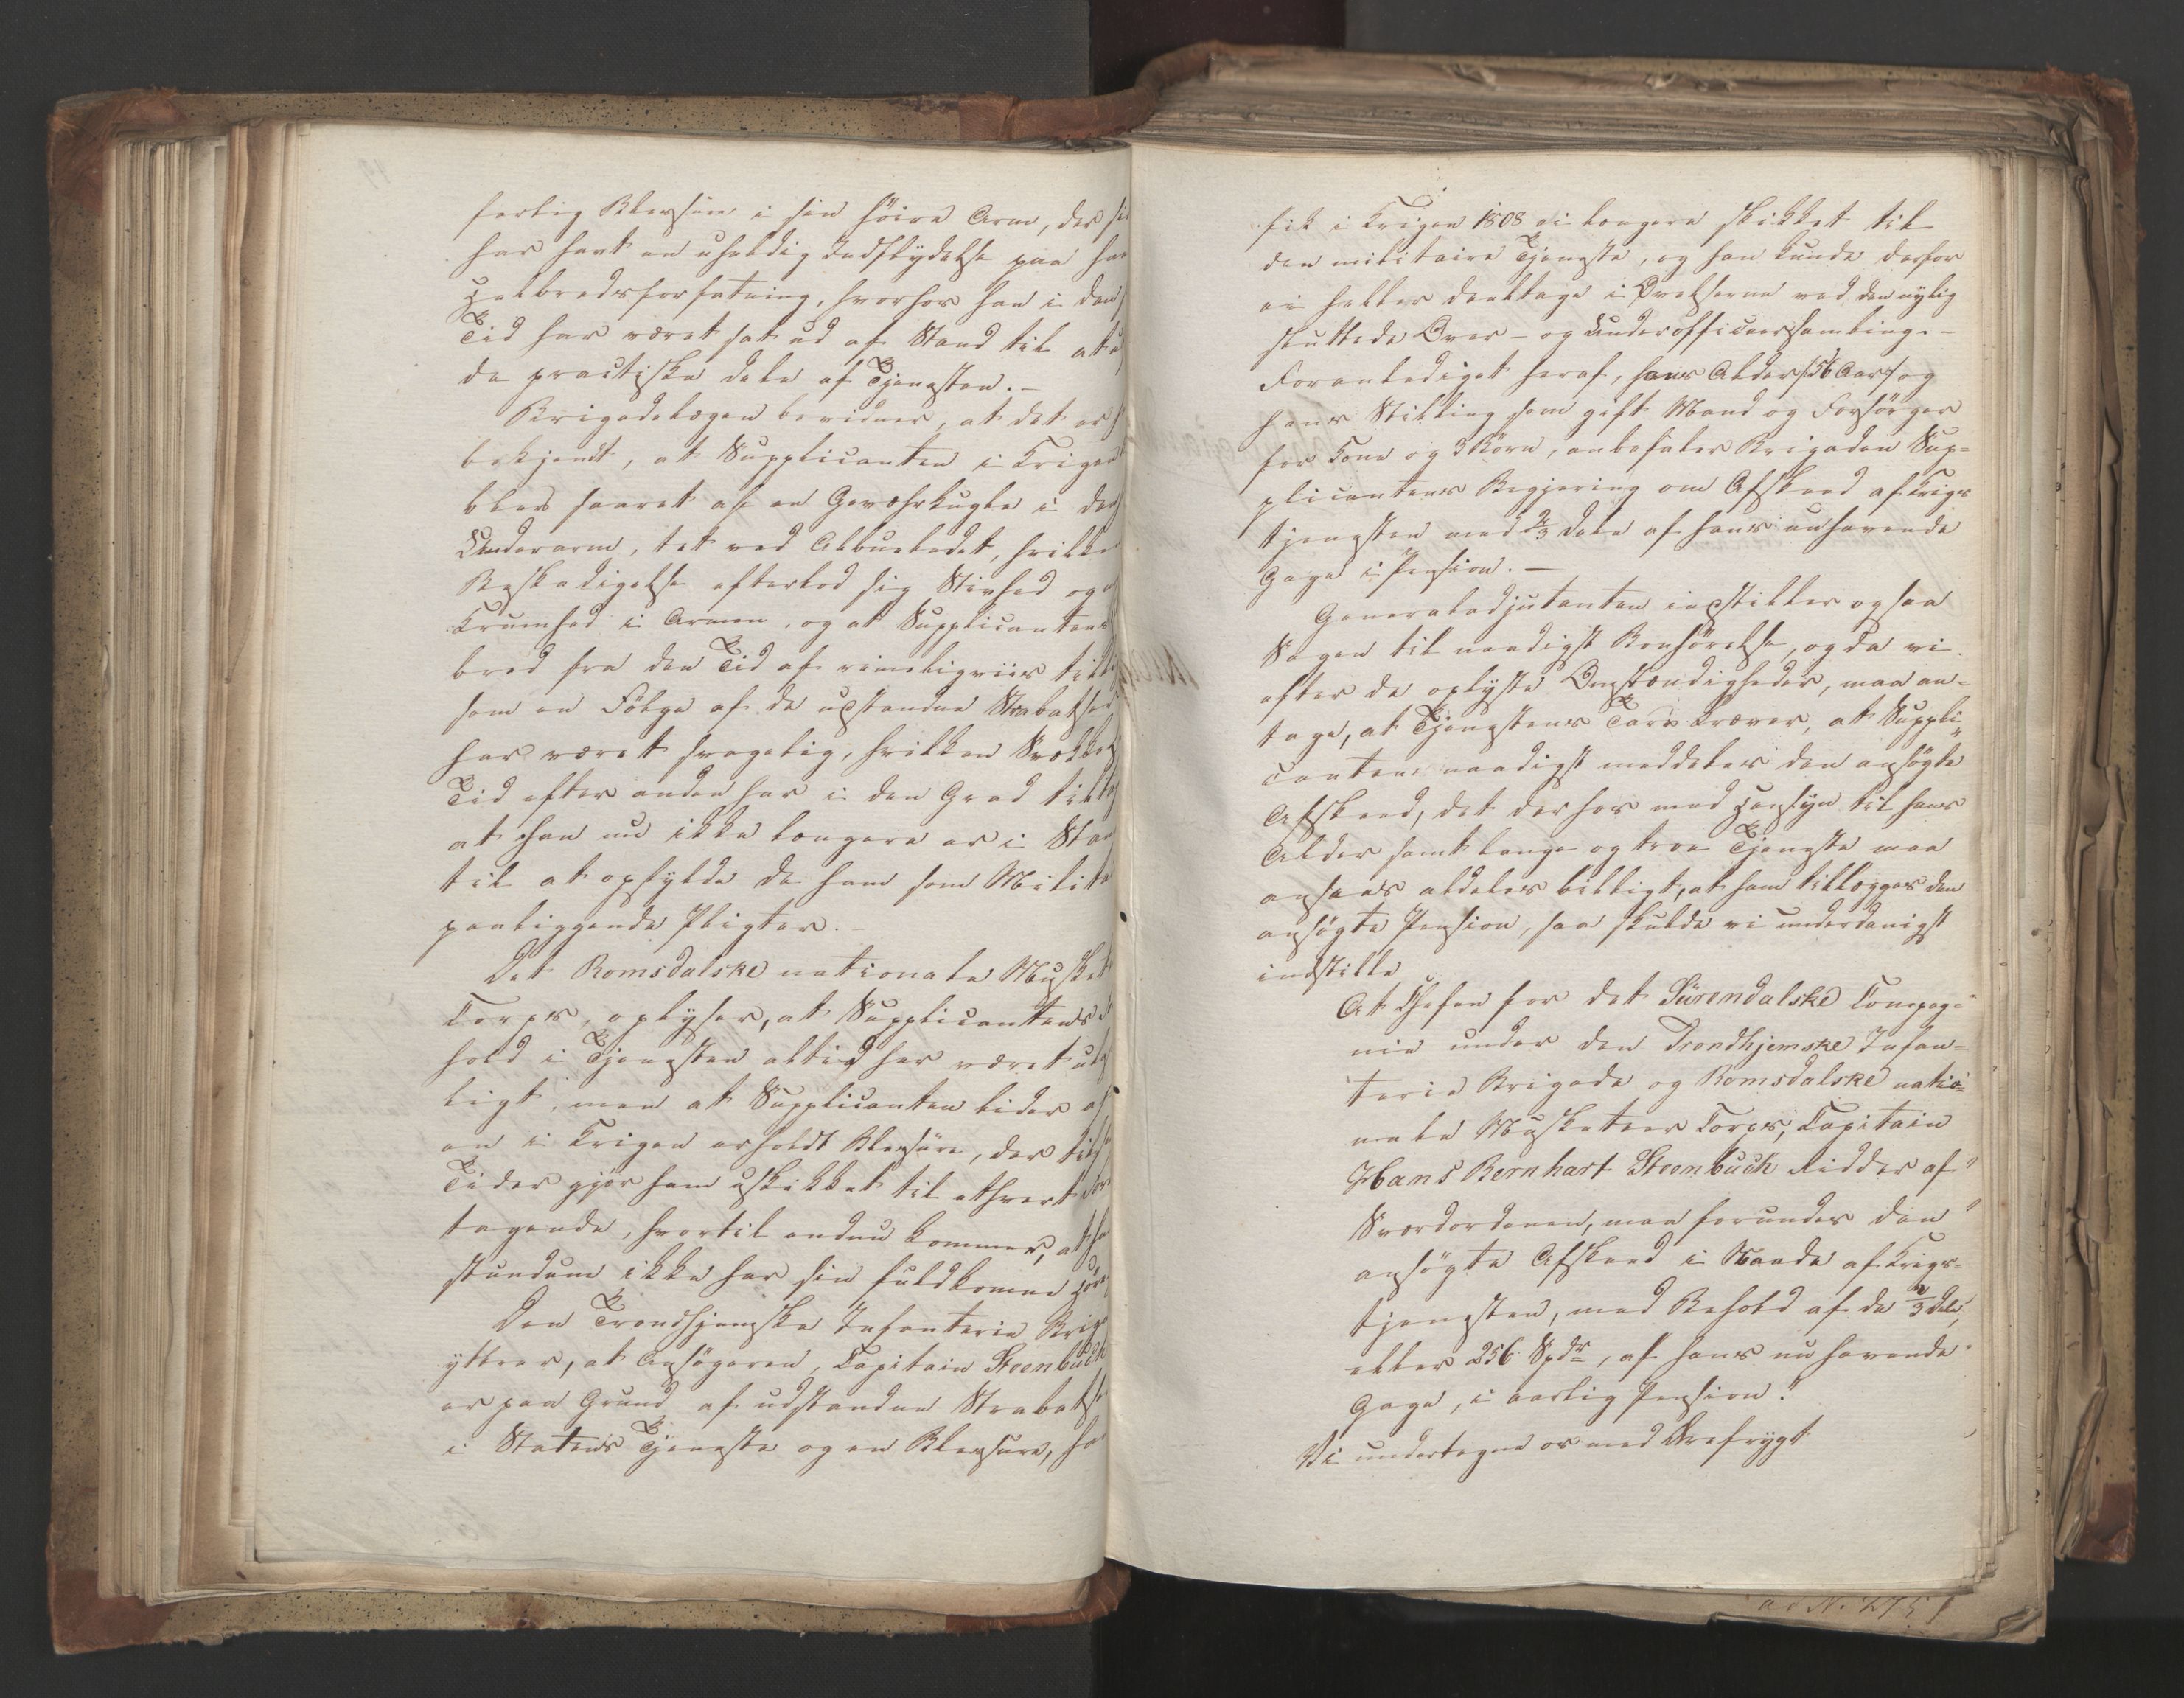 farlig Blessure i sin höire Arm, der si
har havt en uheldig Indflydelse paa han
Helbredsforfatning, hvorhos han i den
Tid har været sat ud af Stand til at u
de practiske Dele af Tjenesten.-
Brigadelægen bevidner, at det er h
bekjendt, at Supplicanten i Krigen
blev saaret af en Geværkugle i den
Underarm, tet ved Albueledet, hvilke
Beskadigelse efterlod sig Stivhed og
Krumhed i Armen, og at Supplicantens
bred fra den Tid af rimeligviis till
som en Fölge af de udstandne Strabatser
har været svagelig, hvilken Svækkel
Tid efter anden har i den Grad tilta
at han nu ikke længere er i Stan
til at opfylde de ham som Milita
paaliggende Pligter.-
Det Romsdalske nationale Musket
Corps, oplyser, at Supplicantens
hold i Tjenesten altid har været ud
ligt, men at Supplicanten lider af
en i Krigen erholdt Blessure, der til
Tider gjør ham uskikket til ethvert Fore
tagende, hvortil endnu kommer, at ha
stundum ikke har sin fuldkomne Höre
Den Trondhjemske Infanterie Brig
yttrer, at Ansögeren, Capitain Steenbuch
er paa Grund af udstandne Strabatse
i Statens Tjeneste og en Blessure, ha
fik i Krigen 1808 ei længere skikket til
den militaire Tjeneste, og han kunde derfor
ei heller deeltage i Övelserne ved den nylig
sluttede Over- og Underofficeerssamling.-
Foranlediget heraf, hans Alder /:56 Aar:/ og
hans Stilling som gift Mand og Forsörger
for Kone og 3 Börn, anbefaler Brigaden Sup=
plicantens Begjering om Afskeed af Krigs
tjenesten med 2/3 Dele af hans nuhavende
Gage i Pension.-
Generaladjutanten indstiller ogsaa
Sagen til naadigst Bönhörelse, og da vi
efter de oplyste Omstændigheder, maa an=
tage, at Tjenestens Tarv kræver, at Suppli=
canten naadigst meddeles den ansögte
Afskeed, det derhos med Hensyn til hans
Alder samt lange og troe Tjeneste maa
ansees aldeles billigt, at ham tillægges den
ansögte Pension, saa skulde vi underdanigst
indstille
At Chefen for det Sürendalske Compag=
nie under den Trondhjemske Infan=
terie Brigade og Romsdalske natio=
nale Musketeer Corps, Capitain
Hans Bernhart Steenbuch Ridder af
Sværdordenen, maa forundes den
ansögte Afskeed i Naade af Krigs=
tjenesten, med Behold af de 2/3 Dele,
eller 256 Spdr, af hans nuhavende
Gage, i aarlig Pension."
Vi undertegne os med Ærefrygt
ad N. 275